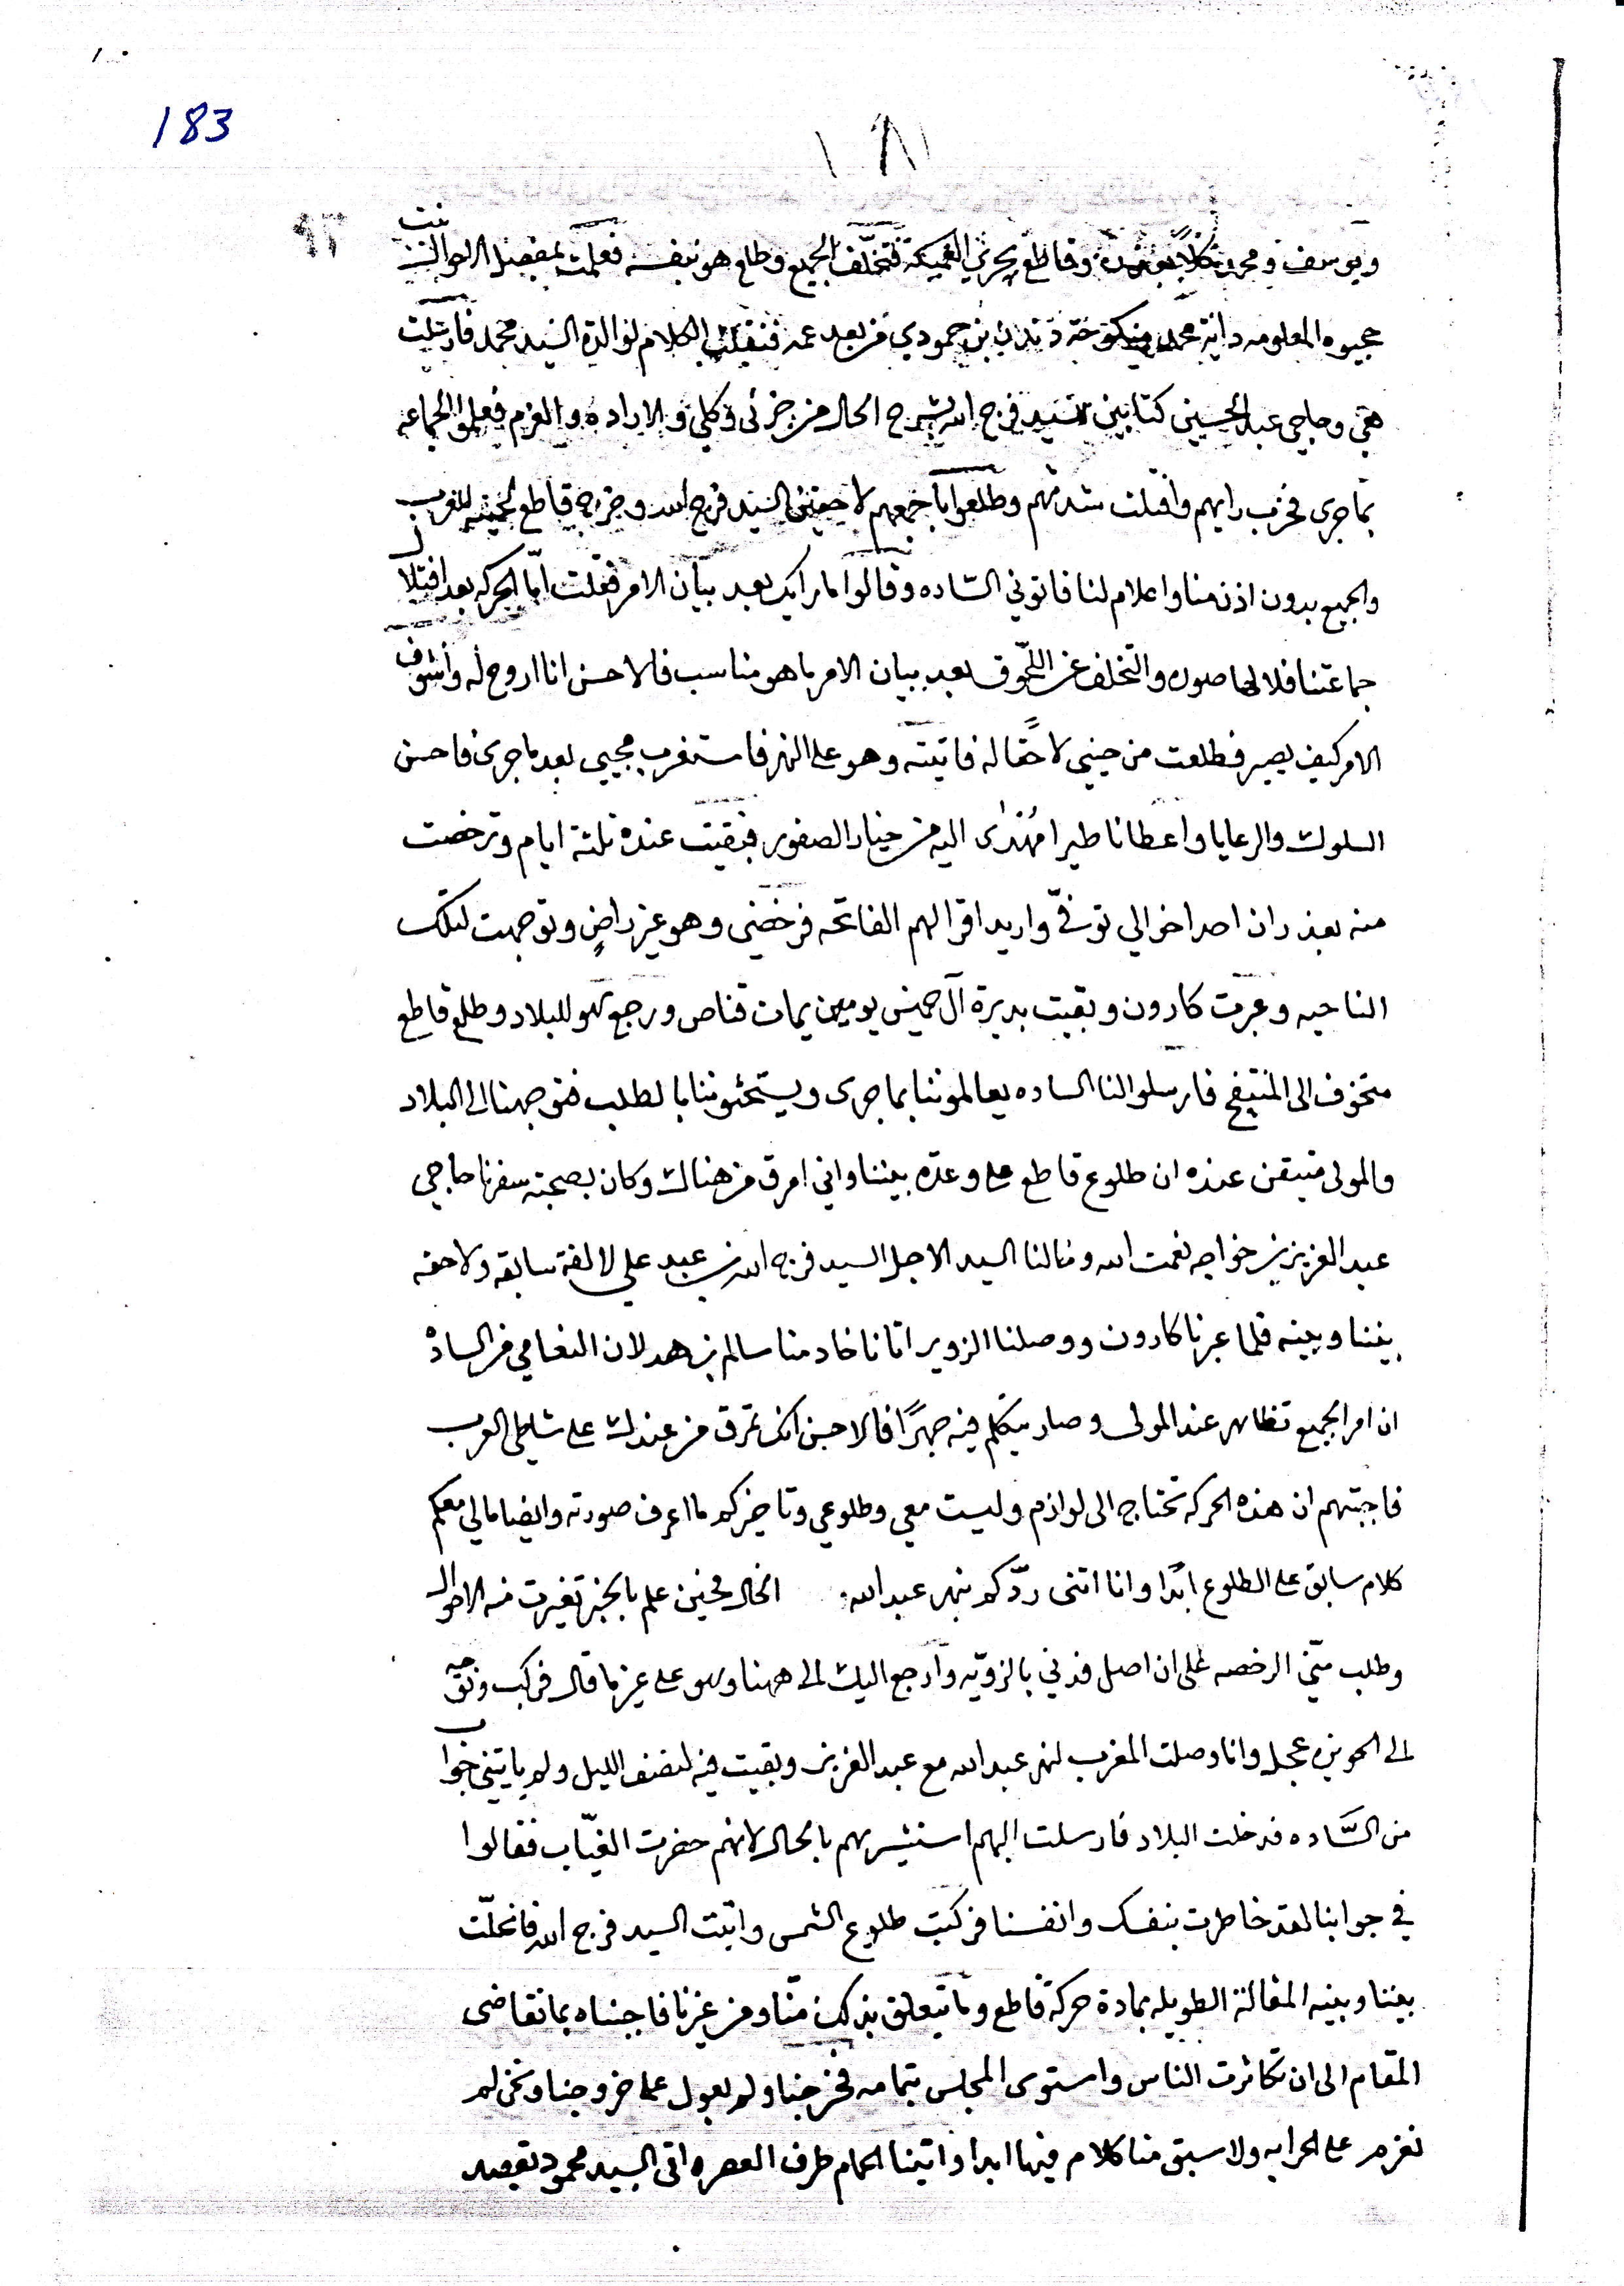 183
١٨١
٩٦
ويوسف و وقاطع فتخلف الجميع وطلع هو بنفسه فعلمت بمفصل الاحوال بنت
جيوه المعلومه دانية محمد منكوحة بن حمودي من بعد عمه فنقلت الكلام لوالدة السيد محمد فارسلت
هي وحاجي عبد الحسيني كتابين للسيد فرج الله بشرح الحال من جزئي وكلي والاراده والعزم فعلموا الجماعه
بما جرى فخرب رايهم وافتلت شدتهم وطلعوا باجمعهم لاحقين السيد فرج الله وخرج قاطع للغرب
والجميع بدون اذن منا واعلام لنا فاتوني الساده وقالوا ما رايك بعد بيان الامر فقلت امّا الحركه بعد افتلال
جماعتنا فلا لها صوره والتخلف عن اللحوق بعد بيان الامر ما هو مناسب فالاحسن انا اروح له واشوف
الامر كيف يصير فطلعت من حيني لاحقًا له فاتيته وهو على النهر فاستغرب مجيي بعد ما جرى فاحسن
السلوك والرعايا واعطانا طيرا مُهْدى اليه من خيار الصقور فبقيت عنده ثلثة ايام وترخصت
منه بعذر ان احد اخوالي توفّي واريد اقرا لهم الفاتحه فرخصني وهو غير راضٍ وتوجهت لتلك
الناحيه وعبرت كارون وبقيت بديرة آل خميس يومين يمات قناص ورجع هو للبلاد وطلع قاطع
متخوف الى المنتفج فارسلوا لنا الساده يعالموننا بما جرى ويستحثوننا بالطلب فتوجهنا الى البلاد
والمولى متيقن عنده ان طلوع قاطع على وعده بيننا واني امرق من هناك وكان بصحبة سفرنا حاجي
عبد العزيز بن خواجه نعمت الله وخالنا السيد الاجل السيد فرج الله بن عبد علي لالفة سابقه ولاحقه
بيننا وبينه فلما عبرنا كارون ووصلنا الزوير اتانا خادمنا سالم بن هدلان النعامي من السادة
ان امر الجميع تظاهر عند المولى وصار يتكلم فيه جهرًا فالاحسن انك تمرق من عندك على شاطي العرب
فاجبتهم ان هذه الحركه تحتاج الى لوازم وليست معي وطلوعي وتاخيركم ما اعرف صورته وايضا مالي معكم
كلام سابق على الطلوع ابدًا وانا اتنى ردّكم بنهر عبد الله. الخال فحين علم بالخبر تغيرت منه الاحوال
وطلب منّي الرخصه على ان اصل فدني بالزويّه وارجع اليك الى ههنا وهو على غير ما قال فركب وتوجه
الى الحويزه عجل وانا وصلت المغرب لنهر عبد الله مع عبد العزيز وبقيت فيه لنصف الليل ولم ياتيني جواب
من السَّاده فدخلت البلاد فارسلت اليهم استشيرهم بالحال لانهم حضرت الغيّاب فقالوا
في جوابنا لقد خاطرت بنفسك وانفسنا فركبت طلوع الشمس واتيت السيد فرج الله فانحلّت
بيننا وبينه المقالة الطويله بمادة حركة قاطع وما يتعلق بذلك منّا ومن غيرنا فاجبناه بما تقاضى
المقام الى ان تكاثرت الناس واستوى المجلس بتمامه فخرجنا ولم يعول على خروجنا ونحن لم
نعزم على الحرابه ولا سبق منا كلام فيها ابدا واتينا الحمام طرف العصر واتى السيد محمود بقصد